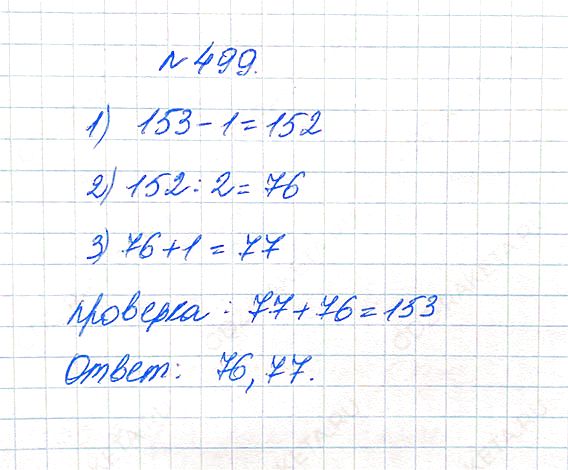 № 499.
1) 153 - 1 = 152
2) 152 : 2 = 76
3) 76 + 1 = 77
проверка : 77 + 76 = 153
Ответ: 76, 77.